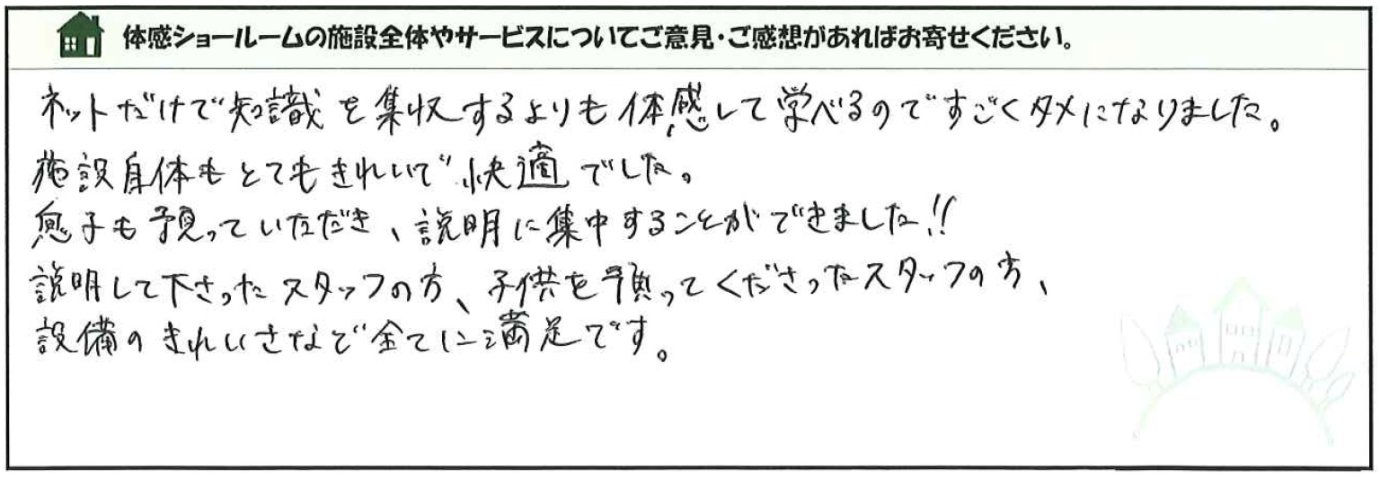 体感ショールームの施設全体やサービスについてご意見・ご感想があればお寄せください。
ネットだけで知識を集収するよりも体感して学べるのですごくタメになりました。
施設自体もとてもきれいで快適でした。
息子も預っていただき、説明に集中することができました!!
説明して下さったスタッフの方、子供を預ってくださったスタッフの方、
設備のきれいさなど全てに満足です。